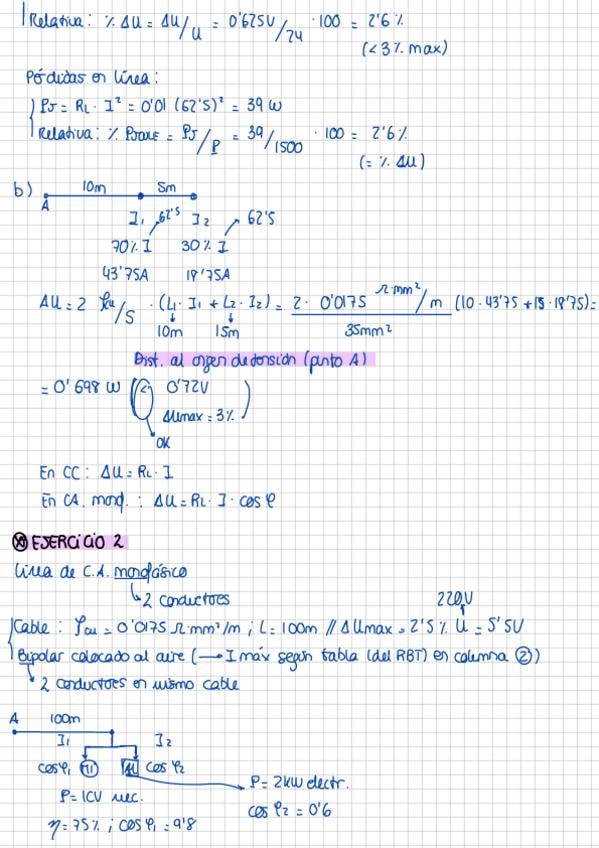 Relativa: % ΔU = ΔU/U = 0'625V/24 · 100 = 2'6 %
(< 3% max)
Pérdidas en línea:
PJ = RL · I² = 0'01 (62'5)² = 39 W
Relativa: % PJOULE = PJ/P = 39/1500 · 100 = 2'6 %
(= % ΔU)
b) 10m 5m
A
I₁ 62'5 I₂ 62'5
70% I 30% I
43'75A 18'75A
ΔU = 2 ρcu/S · (L₁ · I₁ + L₂ · I₂) = 2 · 0'0175 Ω·mm²/m (10 · 43'75 + 15 · 18'75) =
10m 15m 35mm²
Dist. al origen de tensión (punto A)
= 0'698 W (< 0'72V
ΔUmax = 3%)
OK
En CC: ΔU = RL · I
En CA. mond. : ΔU = RL · I · cos φ
EJERCICIO 2
Línea de C.A. monofásico
2 conductores
220V
Cable : ρcu = 0'0175 Ω·mm²/m ; L = 100m // ΔUmax = 2'5 % U = 5'5V
Bipolar colocado al aire (→ I máx según tabla (del RBT) en columna ②)
2 conductores en mismo cable
A 100m
I₁ I₂
cosφ₁ M1 cos φ₂
P = 2kW electr.
P = 1CV mec. cos φ₂ = 0'6
η = 75% ; cos φ₁ = 0'8